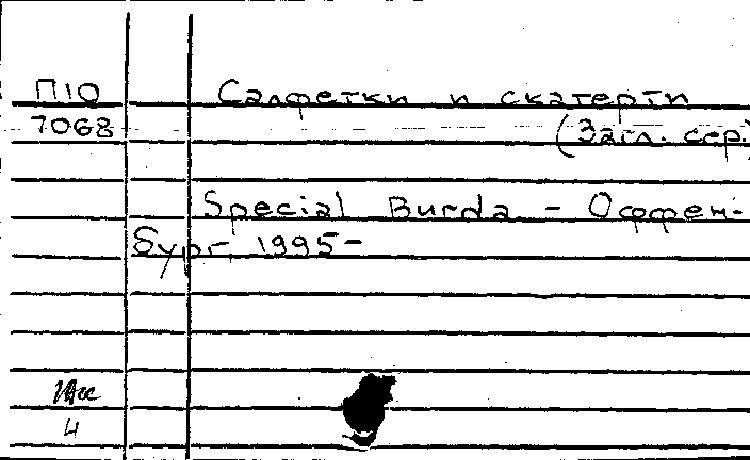 П10
Салфетки и скатерти
7068
(Загл. сер.)
Special Burda - Оффен-
бург, 1995-
4